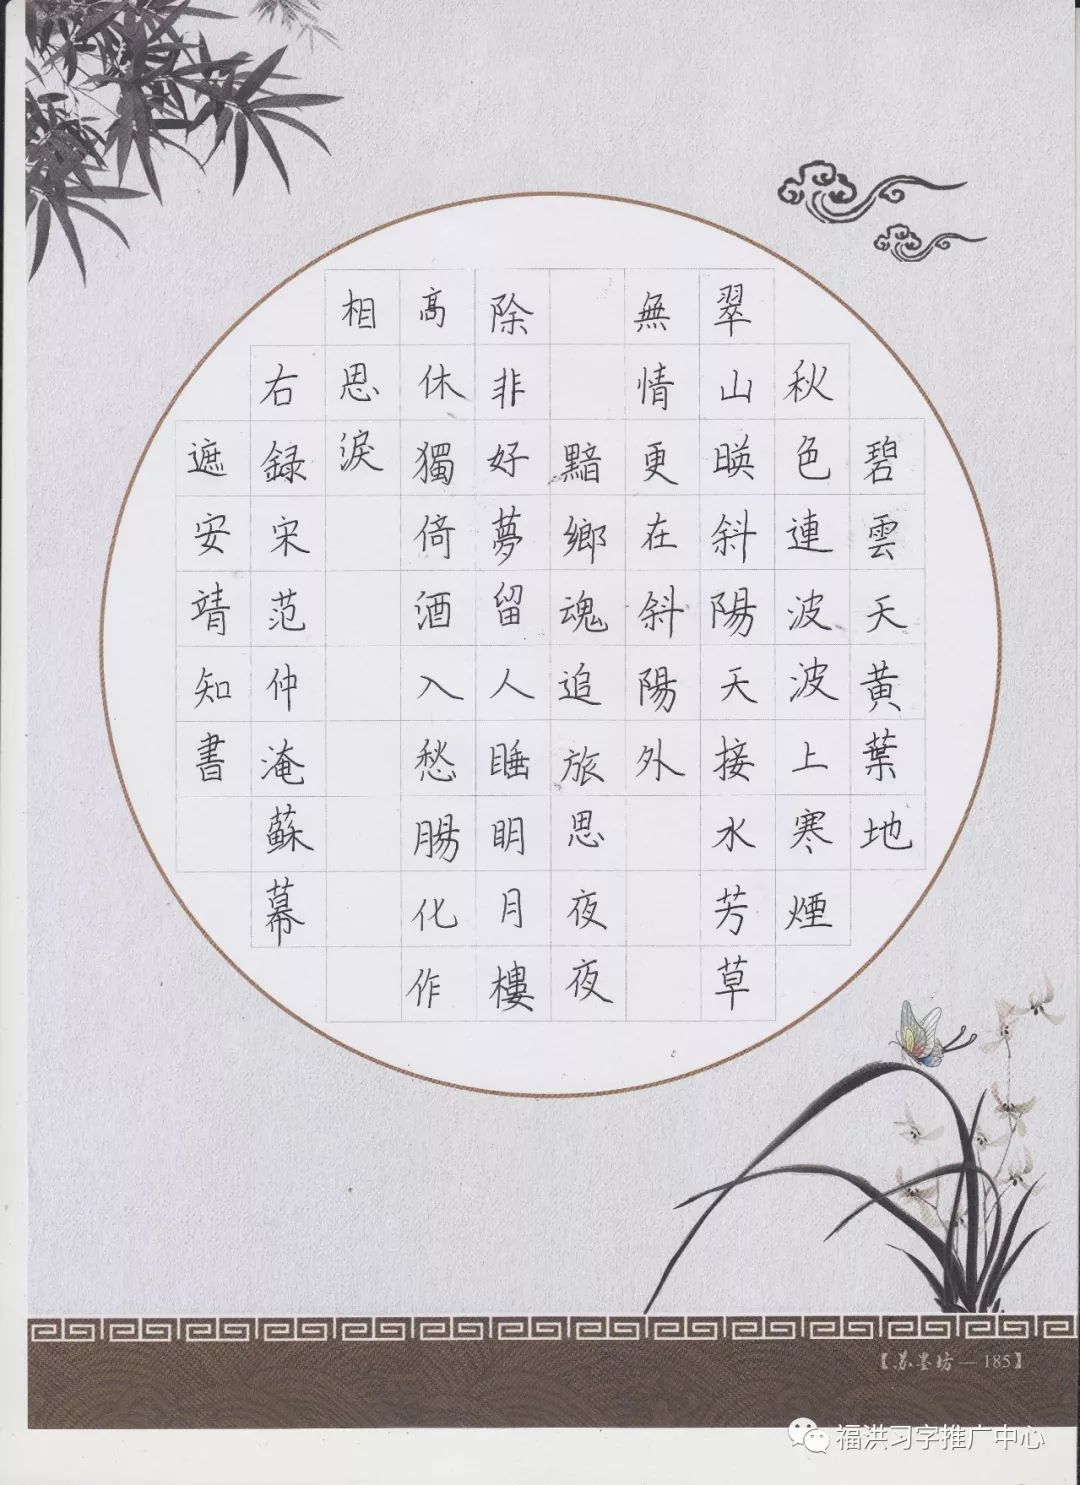 碧雲天黃葉地
秋色連波波上寒煙
翠山暎斜陽天接水芳草
無情更在斜陽外
黯鄉魂追旅思夜夜
除非好夢留人睡明月樓
高休獨倚酒入愁腸化作
相思淚
右録宋范仲淹蘇幕
遮安靖知書
【苏墨坊—185】
福洪习字推广中心